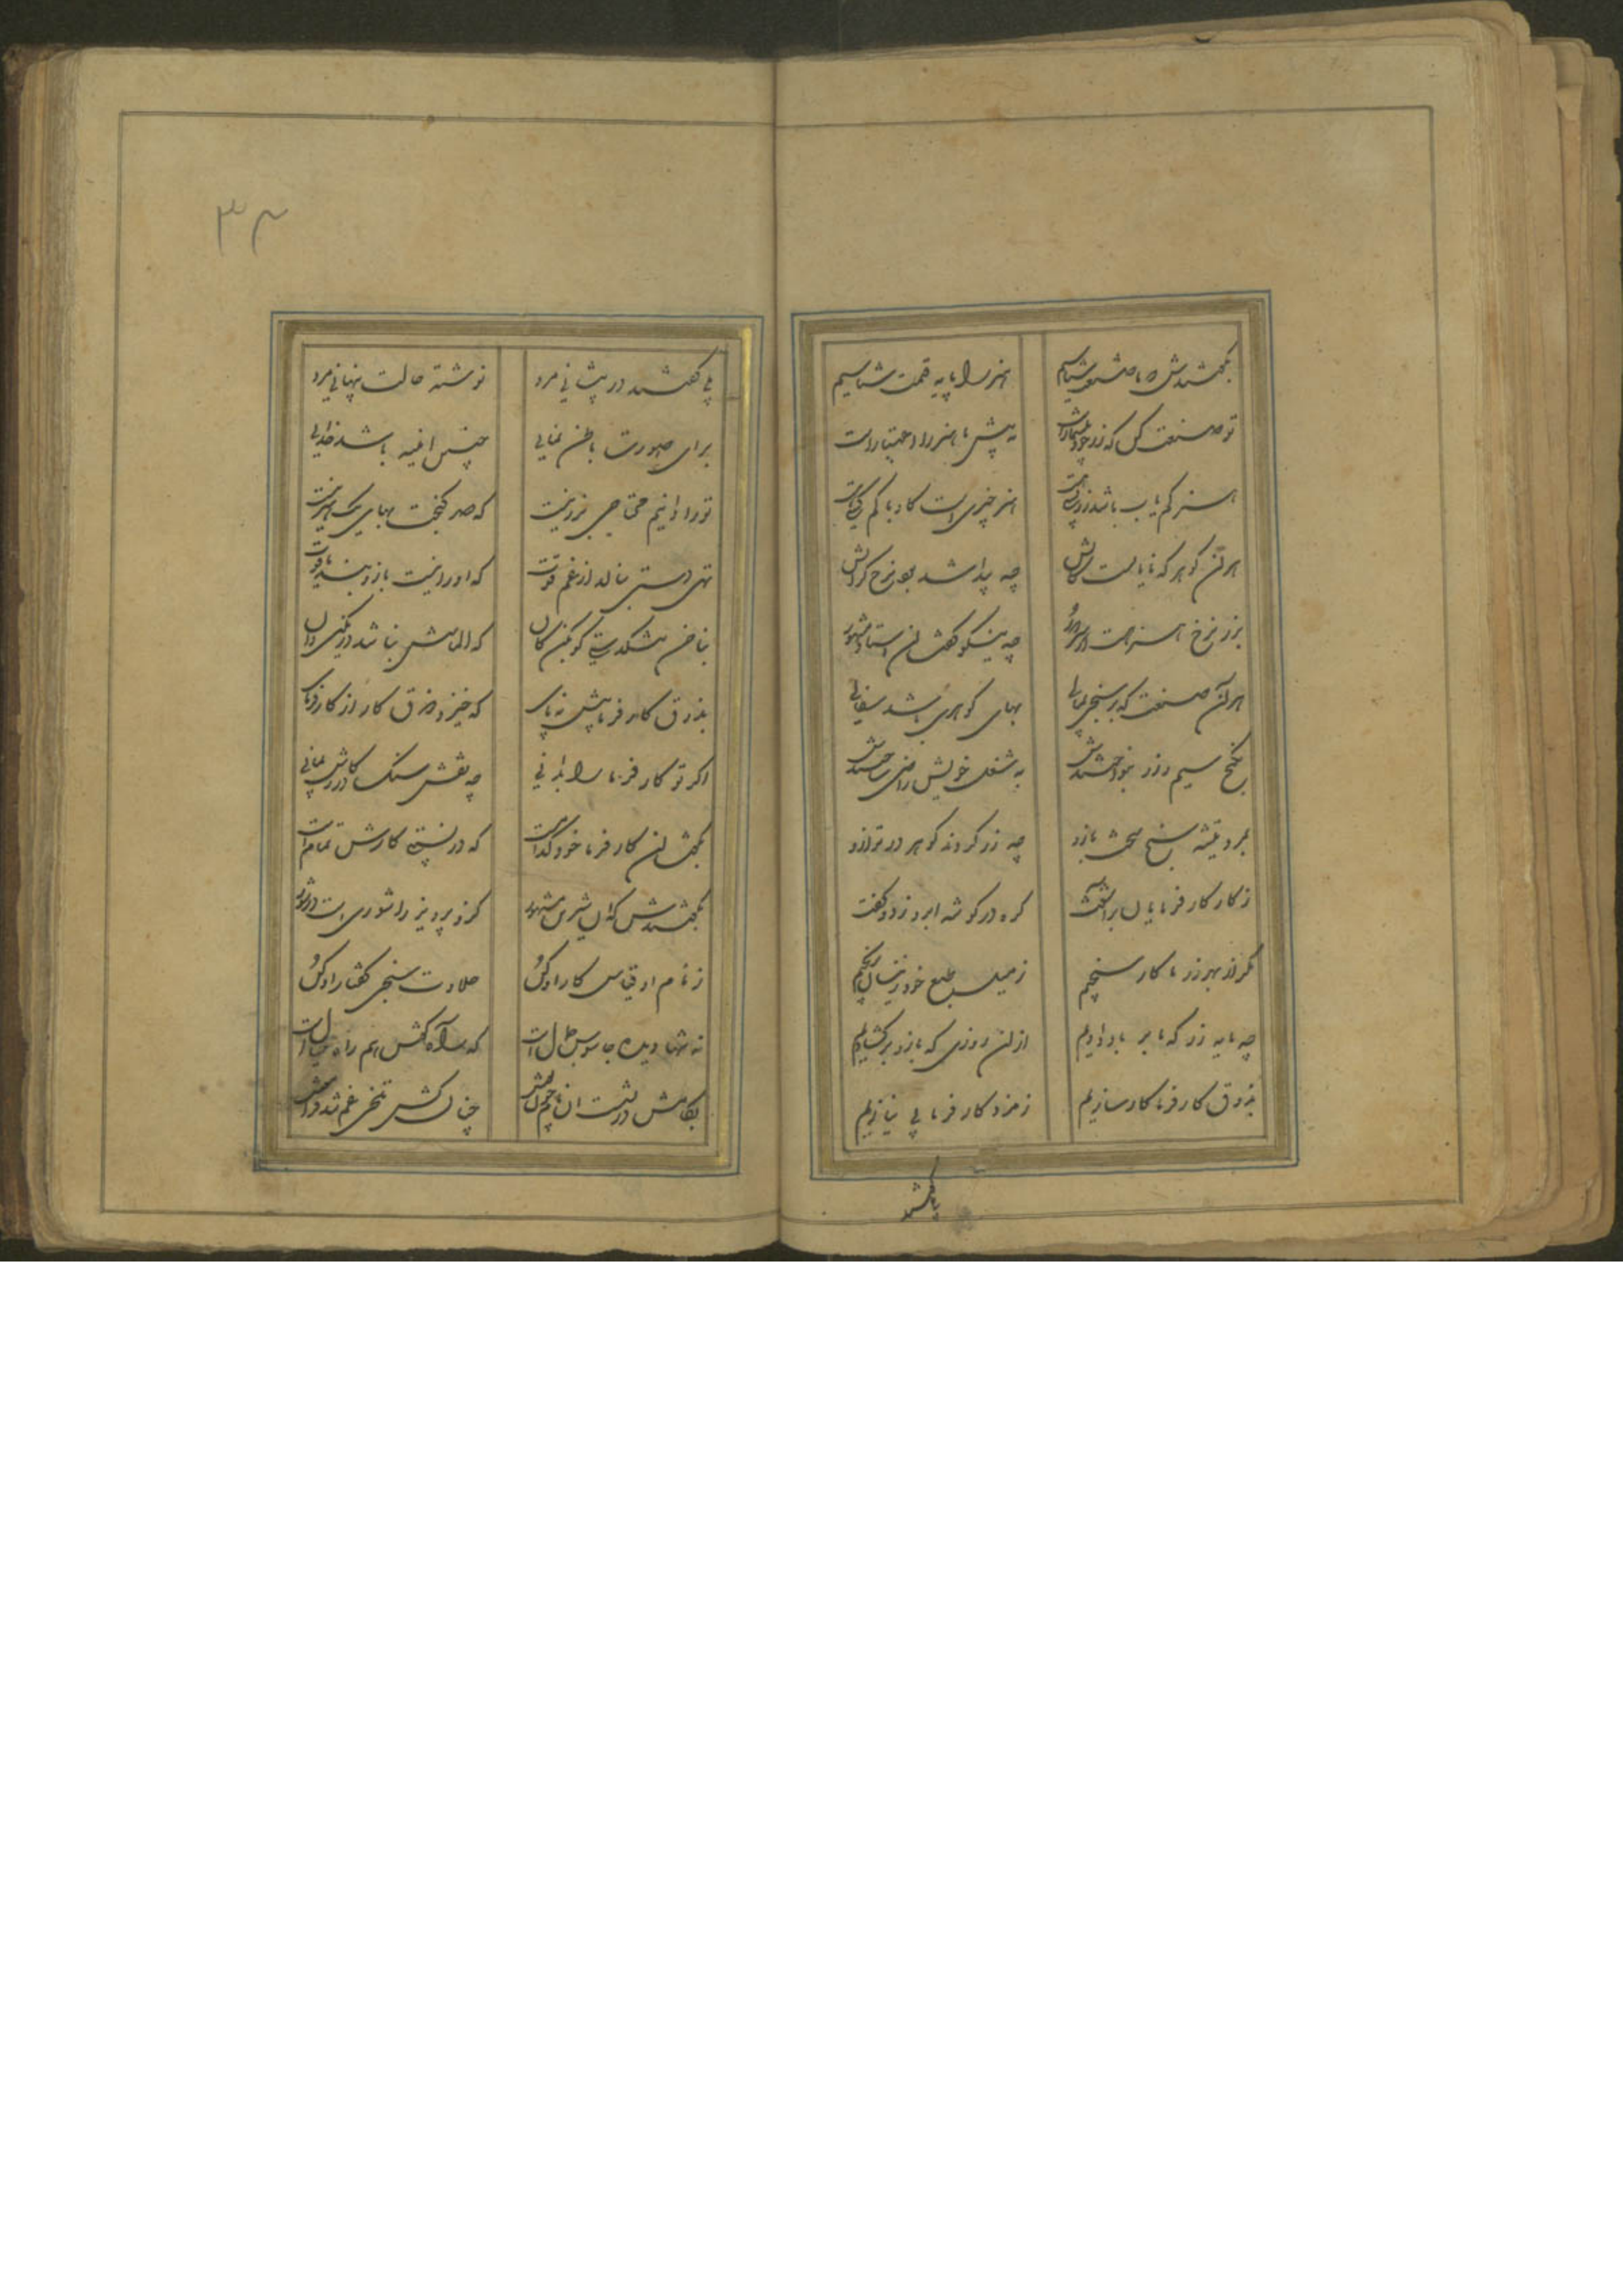 بگفتندش که ما صنعت شناسیم هنر را پایه قیمت شناسیم
تو صنعت کن که زر خود بیشمار است به پیش ما هنر را اعتبار است
هنر کم یاب باشد زر بسی هست هنر چیزی است کاو با کم کسی هست
هر آن گوهر که نایاب است کانش چه پیدا شد بود نرخ گرانش
بزر نرخ هنر هست از هنر دور چه نیکو گفت آن استاد مشهور
هر آن صنعت که بر سنجی بمالی بهای گوهری باشد سفالی
به گنج سیم و زر بنواختندش به شغل خویش راضی ساختندش
بمرد تیشه سنج سخت بازو چه زر کردند گوهر در ترازو
ز کار کارفرمایان برآشفت گره در گوشه ابرو زد و گفت
مگر از بهر زر ما کار سنجیم ز میل طبع خود زینسان به رنجیم
چه مایه زر که ما بر باد دادیم از آن روزی که بازو برگشادیم
بذوق کارفرما کار سازیم ز مزد کارفرما بی نیازیم
بگفتند
بلی گفتند در پیشانی مرد نوشته حالت پنهانی مرد
برای صورت باطن نمایی چنین آئینه باشد خدایی
تو را دانیم محتاجی بزر نیست که صد گنجت بهای یک هنر نیست
تهی دستی بنالد از غم قوت که او را نیست بازو بند یاقوت
بناخن تنگدستی گو بکن کان که الماسش نباشد در نگین دان
بذوق کارفرما پیش نه پای که خیزد ذوق کار از کارفرمای
اگر تو کارفرما را بدانی چه نقش سنگ در کارش بمانی
بگفت آن کارفرما خود کدام است که در نسبت کارش تمام است
بگفتندش که آن شیرین مشهور کزو پرویز را شوری است در شور
ز نام او قیاس کار او کن حلاوت سنجی گفتار او کن
نه تنها دیده جاسوس جمال است که راه گوش هم راه خیال است
بکامش در نشست آن نام چون نوش چنان کش تلخی غم شد فراموش
۳۴